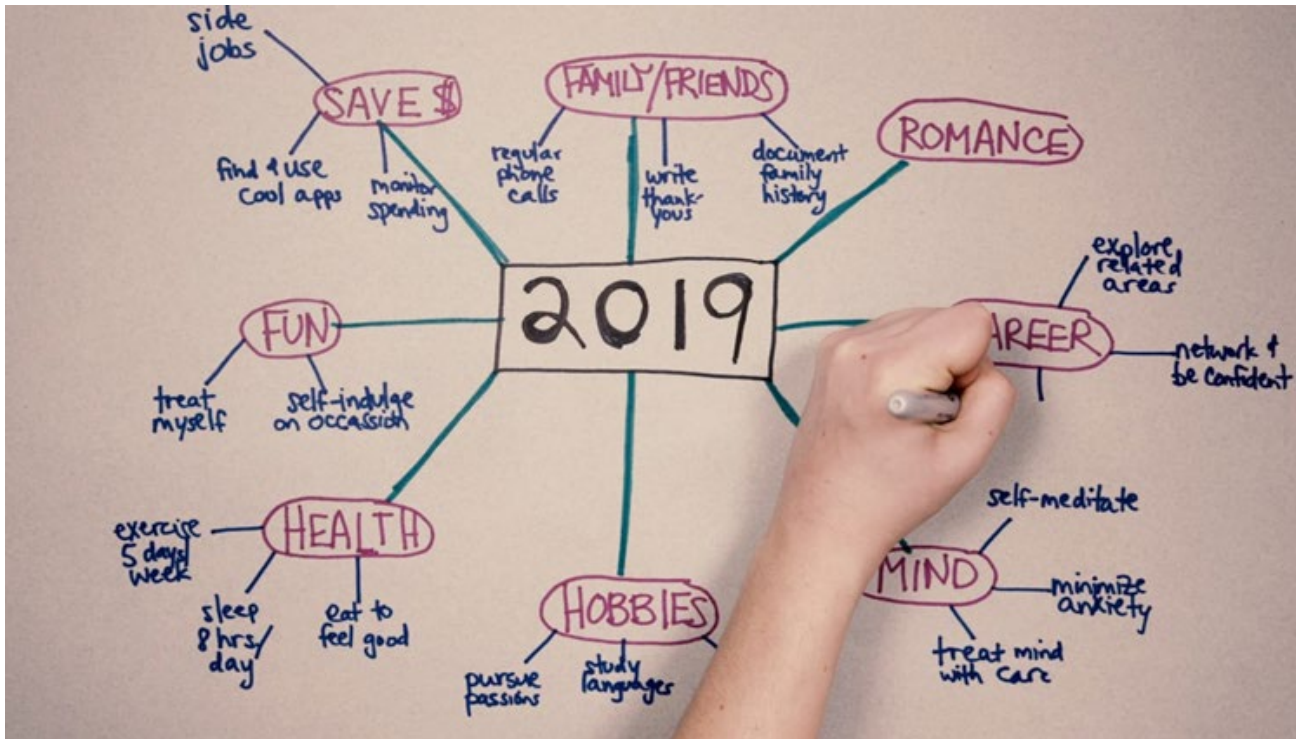 side
jobs
SAVE $
find & use
cool apps
monitor
spending
FAMILY/FRIENDS
regular
phone
calls
write
thank-
yous
document
family
history
ROMANCE
2019
explore
related
areas
AREER
network &
be confident
FUN
treat
myself
self-indulge
on occassion
HEALTH
exercise
5 days/
week
sleep
8 hrs/
day
eat to
feel good
HOBBIES
pursue
passions
study
languages
MIND
self-meditate
minimize
anxiety
treat mind
with care